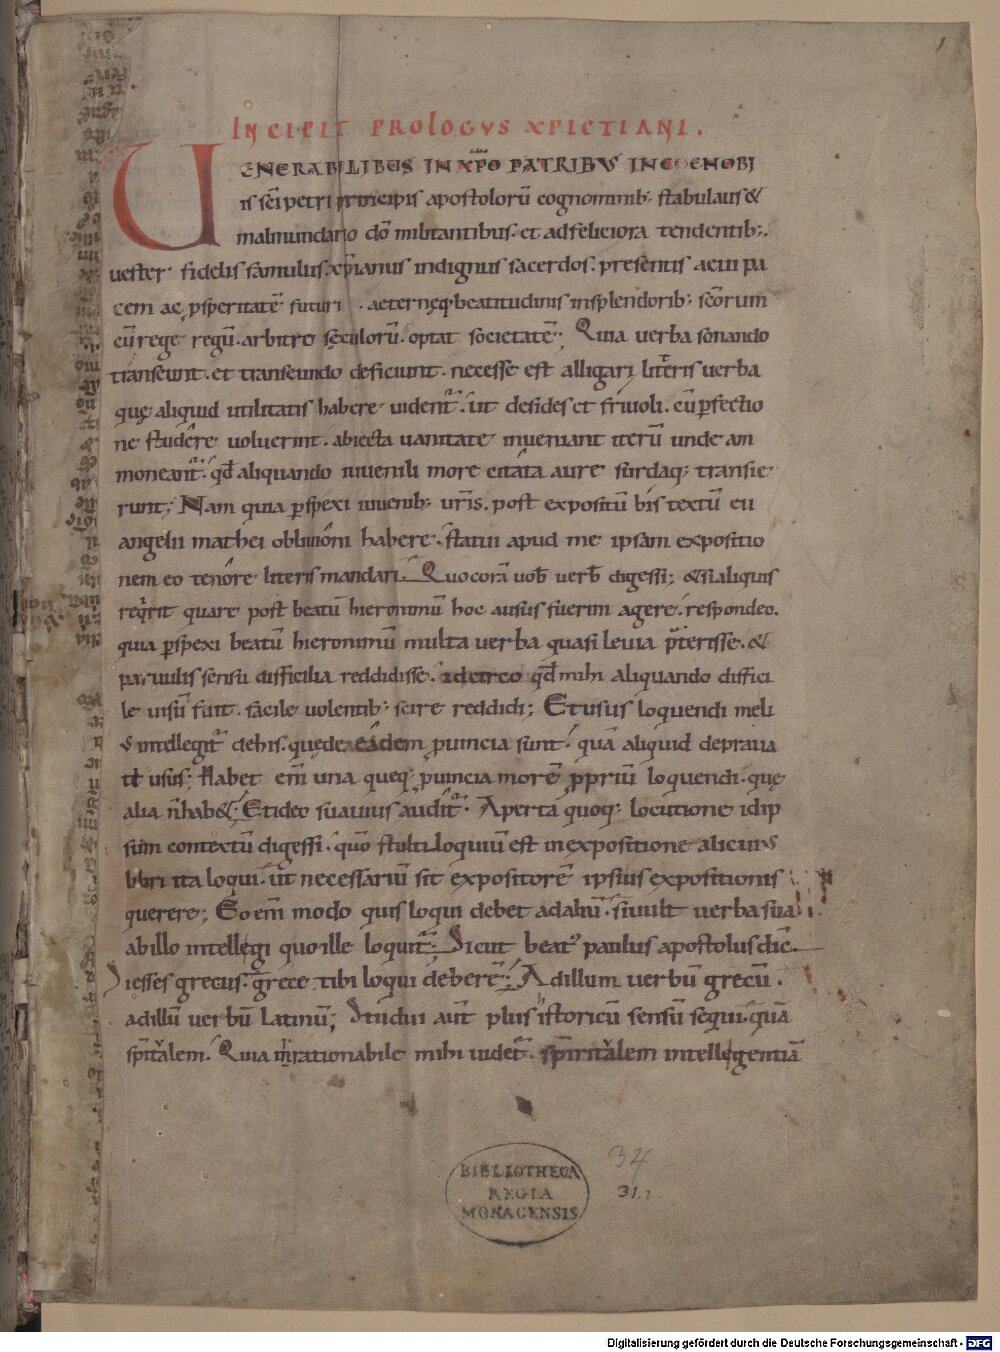 1
INCIPIT PROLOGVS XPICTIANI.
UENERABILIBUS IN XPO PATRIBVS IN COENOBI
is sci petri principis apostolorū cognominib; stabulaus &
malmundario dō militantibus. et ad feliciora tendentib;.
uester fidelis famulus xp̄ianus indignus sacerdos. presentis aeui pa
cem ac ꝓsperitatē futuri. aeternęq; beatitudinis in splendorib; scōrum
cū rege regū. arbitro sęculorū. optat societatē; Quia uerba sonando
transeunt. et transeundo deficiunt. necesse est alligari literis uerba
quę aliquid utilitatis habere uident̄. ut desides et friuoli. cū ꝑfectio
ne studere uoluerint. abiecta uanitate inueniant iterū unde am
moneant̄. qd̄ aliquando iuuenili more citata aure surdaq; transie
runt; Nam quia ꝑspexi iuuenib; ur̄is. post expositū bis textū eu
angelii mathei obliuioni habere. statui apud me ipsam expositio
nem eo tenore literis mandari. Quo corā uob̄ uerb̄ digessi; & si aliquis
reqͥrit quare post beatū hieronimū hoc ausus fuerim agere. respondeo.
quia ꝑspexi beatū hieronimū multa uerba quasi leuia p̄terisse. &
paruulis sensu difficilia reddidisse. idcirco qd̄ mihi aliquando diffici
le uisū fuit. facile uolentib; scire reddidi; Et usus loquendi meli
us intellegit̄ de his. quę de eadem ꝓuincia sunt. quā aliquid depraua
tē usus; Habet em̄ una queq; ꝓuincia morē ꝓpriū loquendi. quę
alia n̄ hab&; Et ideo suauius audit̄. Aperta quoq; locutione idip
sum contextū digessi. quō stultiloquiū est in expositione alicuius
libri ita loqui. ut necessariū sit expositorē ipsius expositionis
querere; Eo em̄ modo quis loqui debet ad aliū. si uult uerba sua
ab illo intellegi quo ille loquit̄. Sicut beatꝰ paulus apostolus dic̄.
Si esses grecus. grece tibi loqui deberē; Ad illum uerbū grecū.
ad illū uerbū latinū; Studui aut̄ plus istoricū sensū sequi. quā
spiritalem. Quia irrationabile mihi uidet̄. spiritalem intellegentiā
BIBLIOTHECA
REGIA
MONACENSIS.
34
31.2.
Digitalisierung gefördert durch die Deutsche Forschungsgemeinschaft - DFG